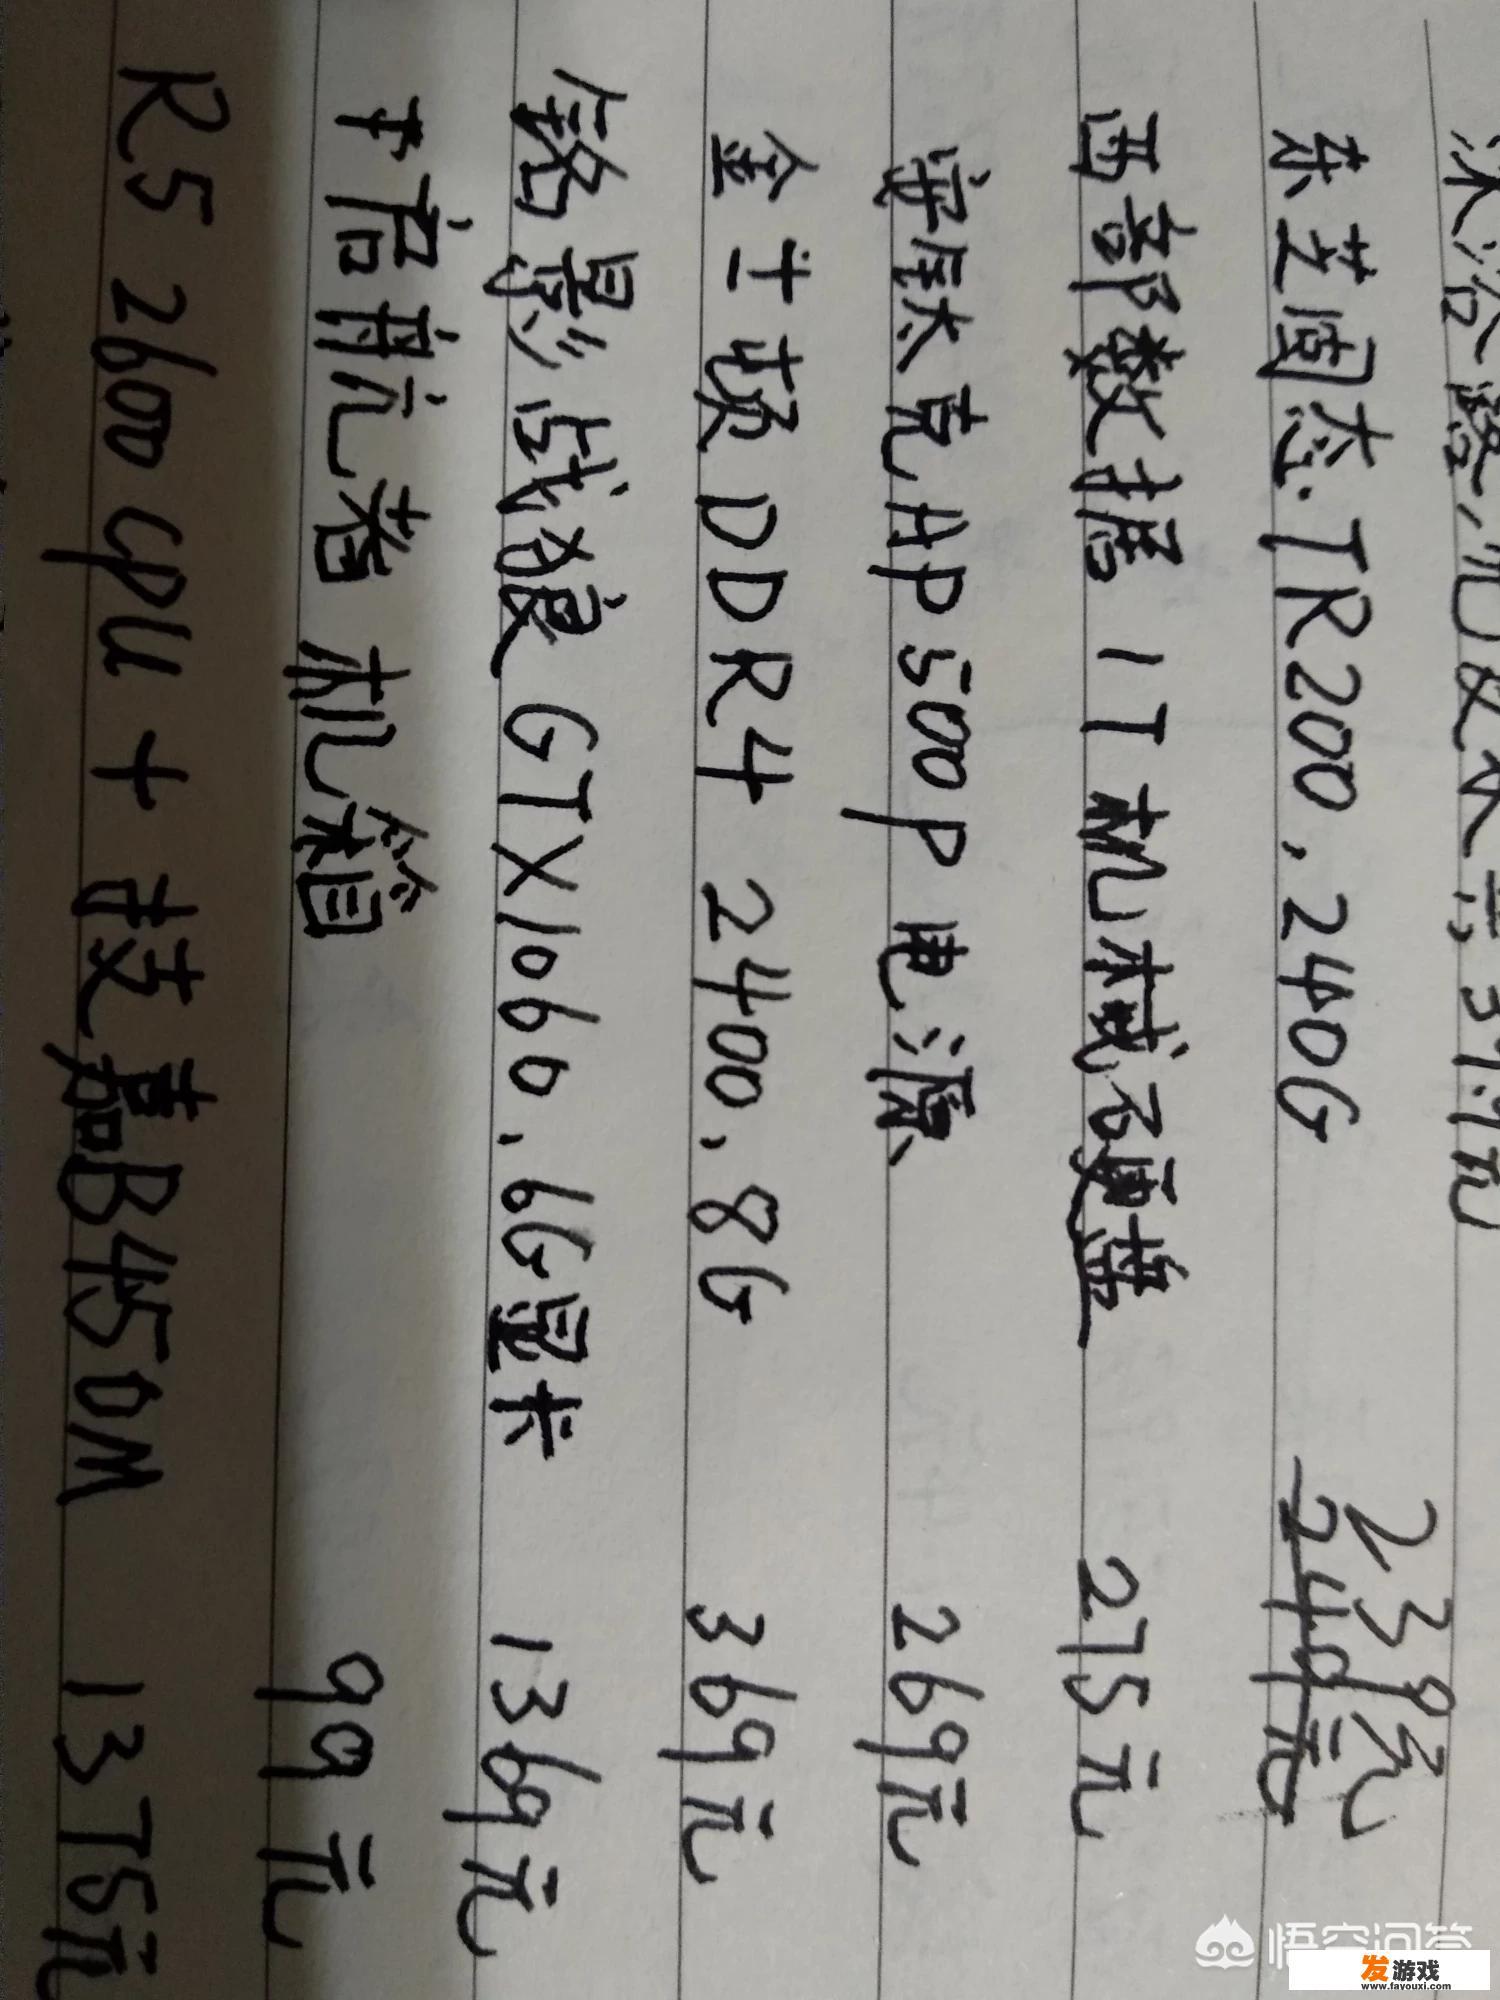 东芝固态.TR200,240G 239元
249元
西部数据 1T 机械硬盘 275元
安钛克AP500P 电源 269元
金士顿DDR4 2400,8G 369元
铭影战狼 GTX1060,6G显卡 1369元
启航者 机箱 99元
R5 2600 cpu + 技嘉B450M 1375元
悟空问答
发游戏
www.fayouxi.com